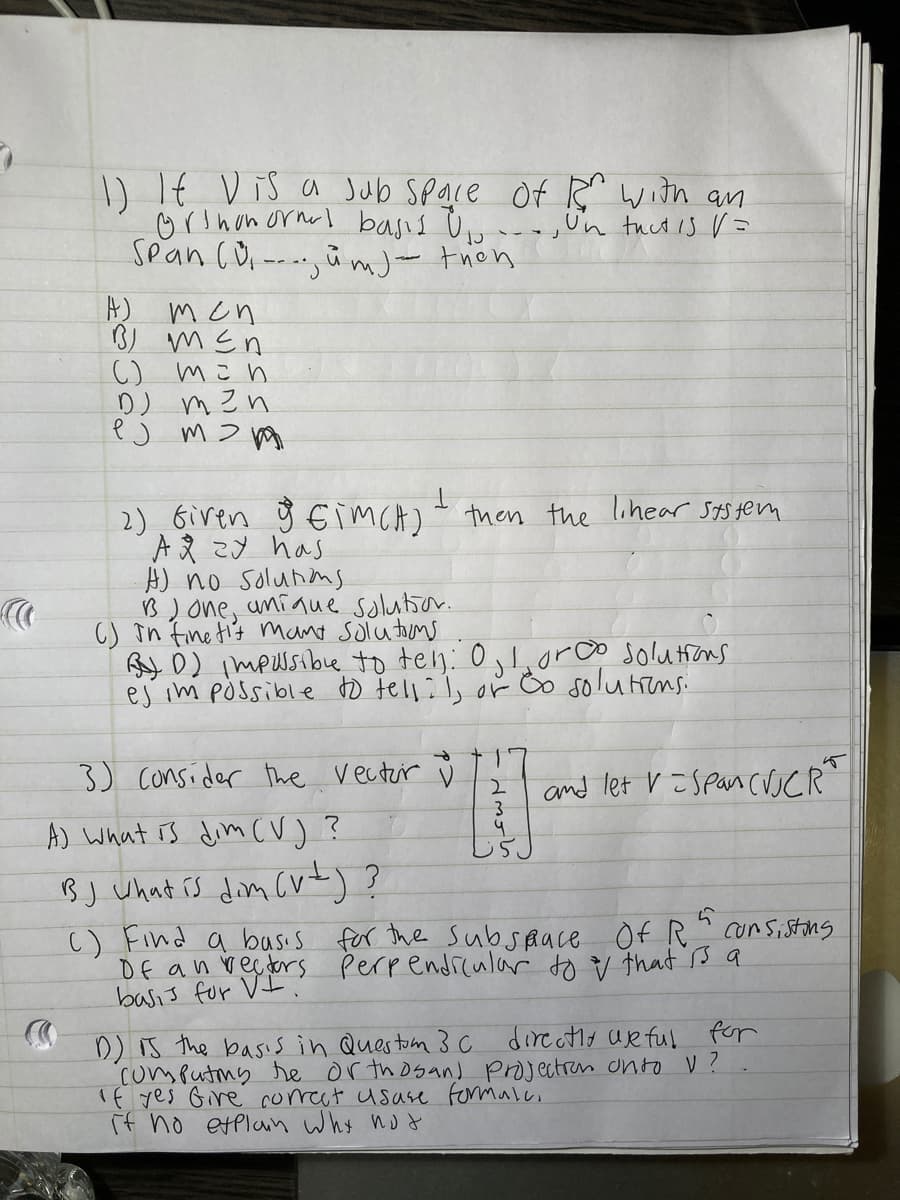 1) If V is a sub space of Rⁿ with an
Orthonornul basis ū₁, ---, ūn thut is V =
Span (ū₁ ----, ūm) — then
A) m < n
B) m ≤ n
C) m = n
D) m ≥ n
e) m > m
2) Given ȳ ∈ im(A)⊥ then the linear system
A x⃗ = y has
A) no solutions
B) one, unique solution.
C) Infinetit many solutions
D) impossible to tell: 0, 1, or ∞ solutions
e) impossible to tell: 1, or ∞ solutions.
3) Consider the vector v⃗ [1 2 3 4 5] and let V = span(v) ⊂ R⁵
A) What is dim (V) ?
B) What is dim (V⊥) ?
C) Find a basis for the subspace Of R⁵ consisting
Of an vectors perpendicular to v⃗ that is a
basis for V⊥.
D) is the basis in Question 3 C directly useful for
computing the orthogonal projection onto V ?
if yes Give correct usage formula.
if no explain why not